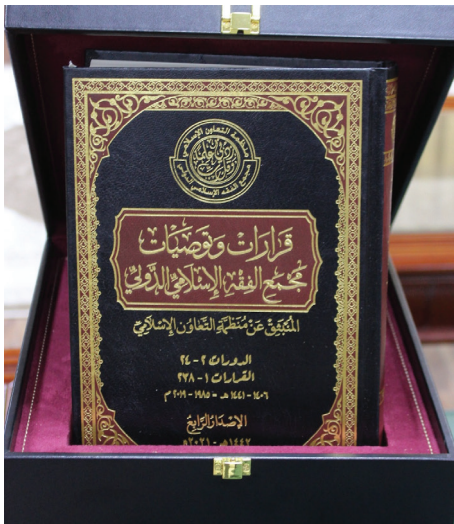 منظمة التعاون الإسلامي
مجمع الفقه الإسلامي الدولي
قرارات وتوصيات
مجمع الفقه الإسلامي الدولي
المنبثق عن منظمة التعاون الإسلامي
الدورات ٢ - ٢٤
القرارات ١ - ٢٣٨
١٤٠٦ - ١٤٤١ هـ - ١٩٨٥ - ٢٠١٩ م
الإصدار الرابع
١٤٤٢هـ - ٢٠٢١م